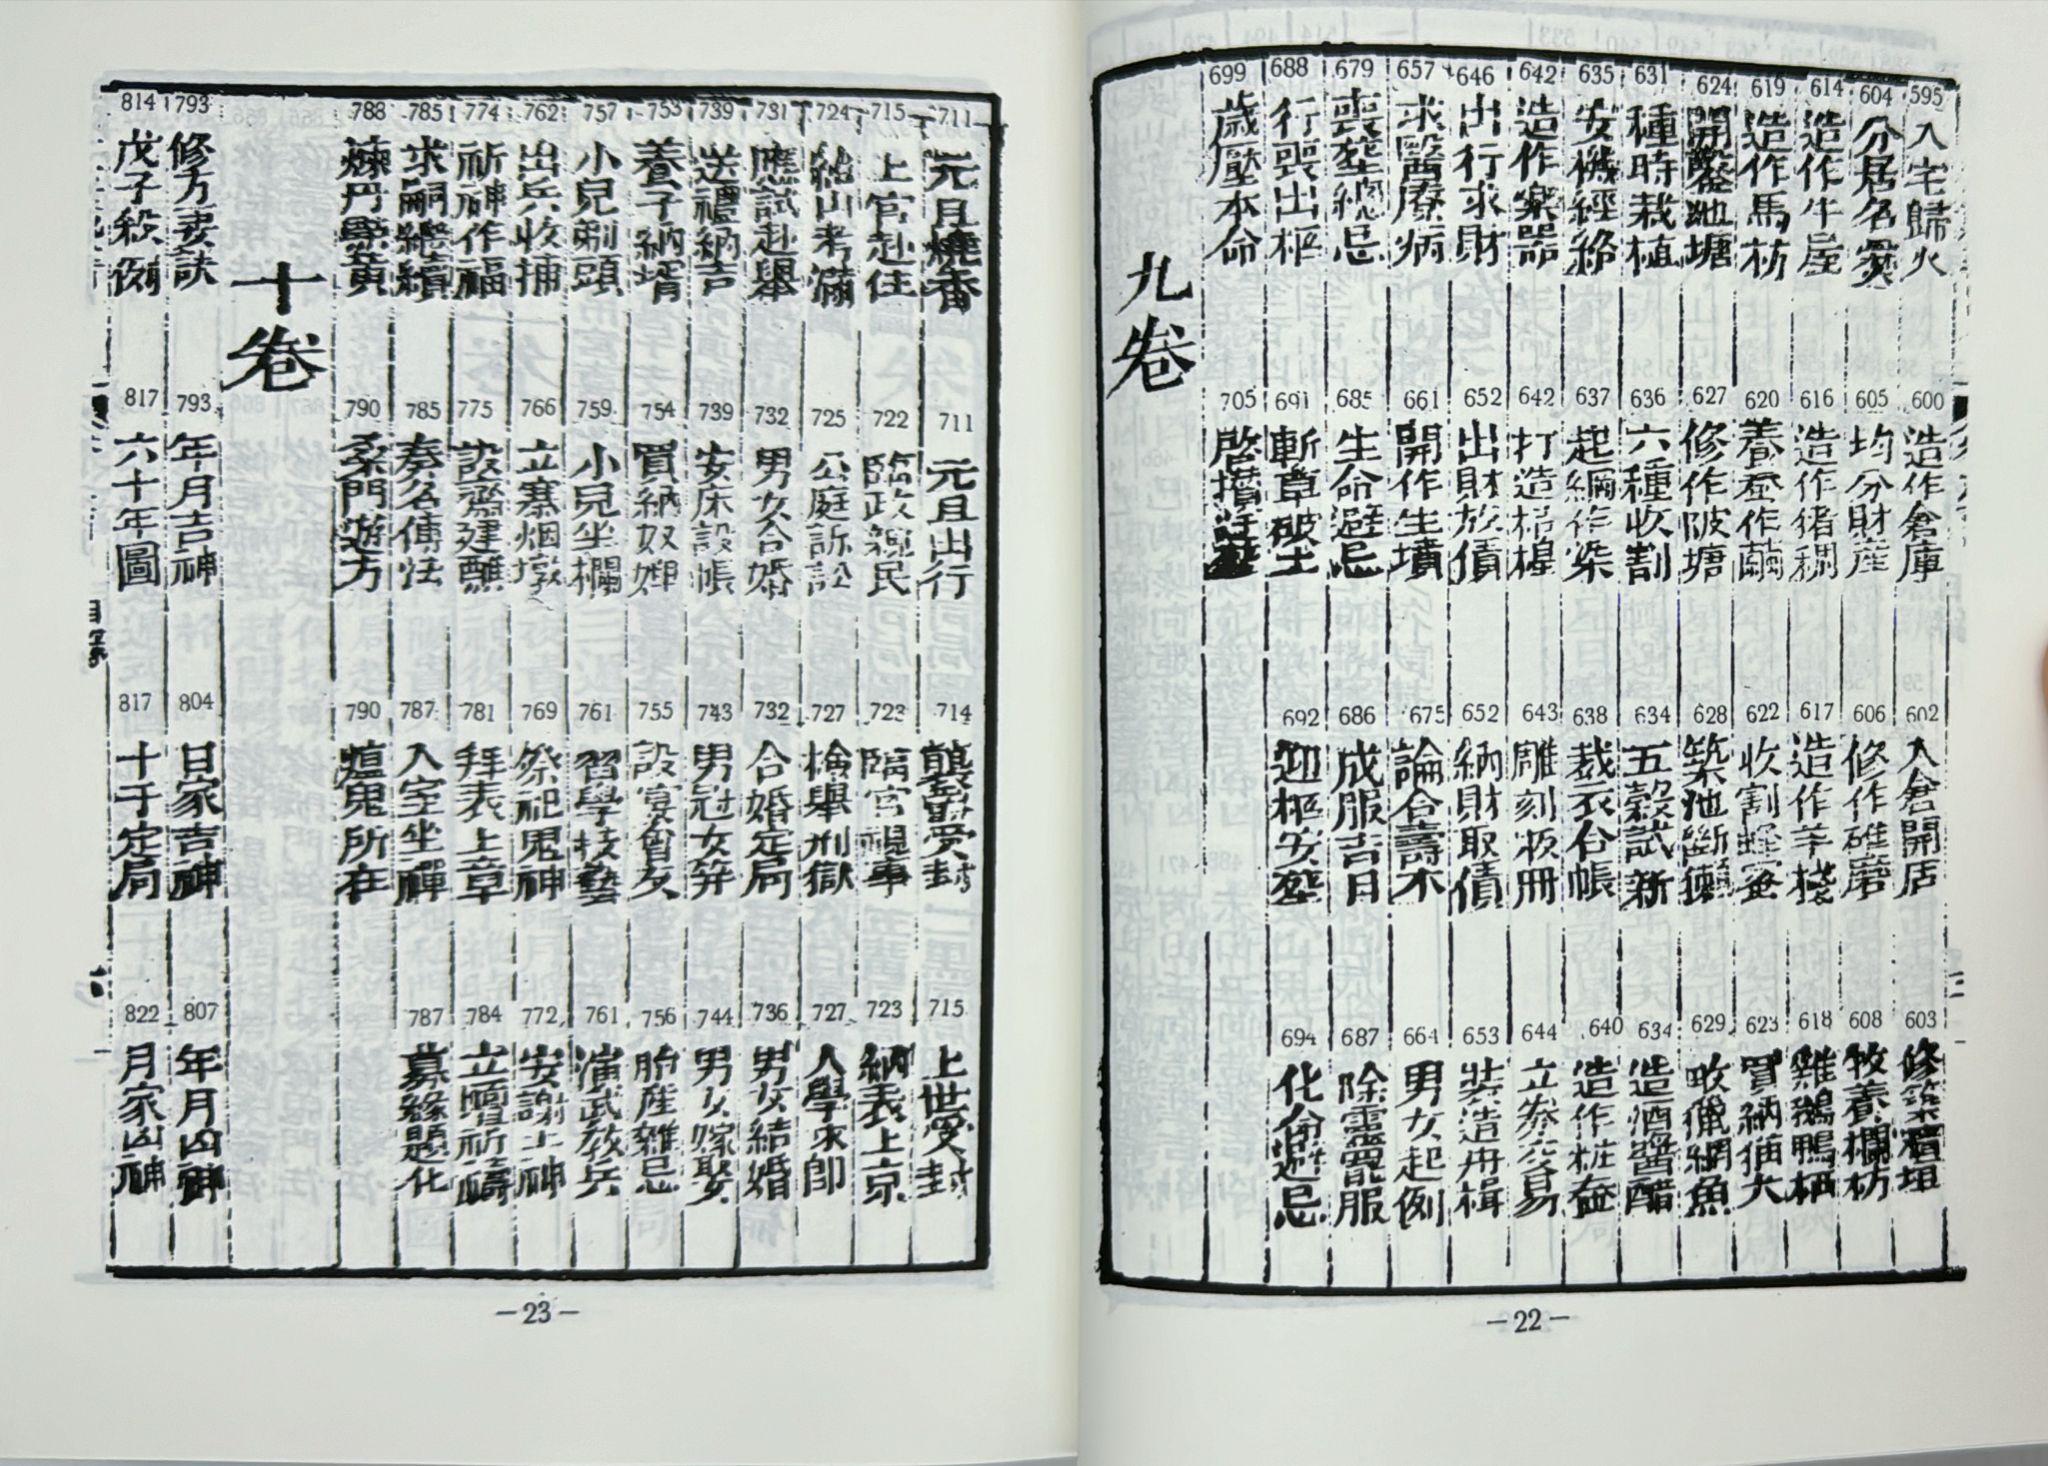 595 入宅歸火
600 造作倉庫
602 入倉開店
603 修築墻垣
604 分居各爨
605 均分財産
606 修作碓磨
608 牧養欄枋
614 造作牛屋
616 造作猪稠
617 造作羊棧
618 雞鵝鴨栖
619 造作馬枋
620 養蚕作繭
622 收割蜂蜜
623 買納猫犬
624 開鑿池塘
627 修作陂塘
628 築池斷獺
629 畋獵網魚
631 種時栽植
636 六種收割
634 五穀試新
634 造酒醬醋
635 安機經絡
637 起綱作染
638 裁衣合帳
640 造作粧奩
642 造作樂器
642 打造
643 雕刻板冊
644 立券交易
646 出行求財
652 出財放債
652 納財取債
653 裝造舟楫
657 求醫療病
661 開作生墳
675 論合壽木
664 男女起例
679 喪塟總忌
685 生命避忌
686 成服吉日
687 除靈罷服
688 行喪出柩
691 斬草破土
692 迎柩安塟
694 化命避忌
699 歲壓本命
705 啓攢
九卷
—22—
711 元旦燒香
711 元旦出行
714 襲爵受封
715 上世受封
715 上官赴任
722 臨政親民
723 臨官視事
723 納表上京
724 給由考滿
725 公庭訴訟
727 檢舉刑獄
727 入學求師
731 應試赴舉
732 男女合婚
732 合婚定局
736 男女結婚
739 送禮納吉
739 安床設帳
743 男冠女笄
744 男女嫁娶
753 養子納壻
754 買納奴婢
755 設宴會友
756 胎産雜忌
757 小兒剃頭
759 小兒坐欄
761 習學技藝
761 演武教兵
762 出兵收捕
766 立寨烟墩
769 祭祀鬼神
772 安謝土神
774 祈神作福
775 設齋建醮
781 拜表上章
784 立壇祈禱
785 求嗣繼續
785 奏名傳法
787 入室坐禪
787 募緣題化
788 煉丹藥黃
790 桑門遊方
790 瘟鬼所在
十卷
793 修方要訣
793 年月吉神
804 日家吉神
807 年月凶神
814 戊子殺例
817 六十年圖
817 十干定局
822 月家凶神
目錄
—23—